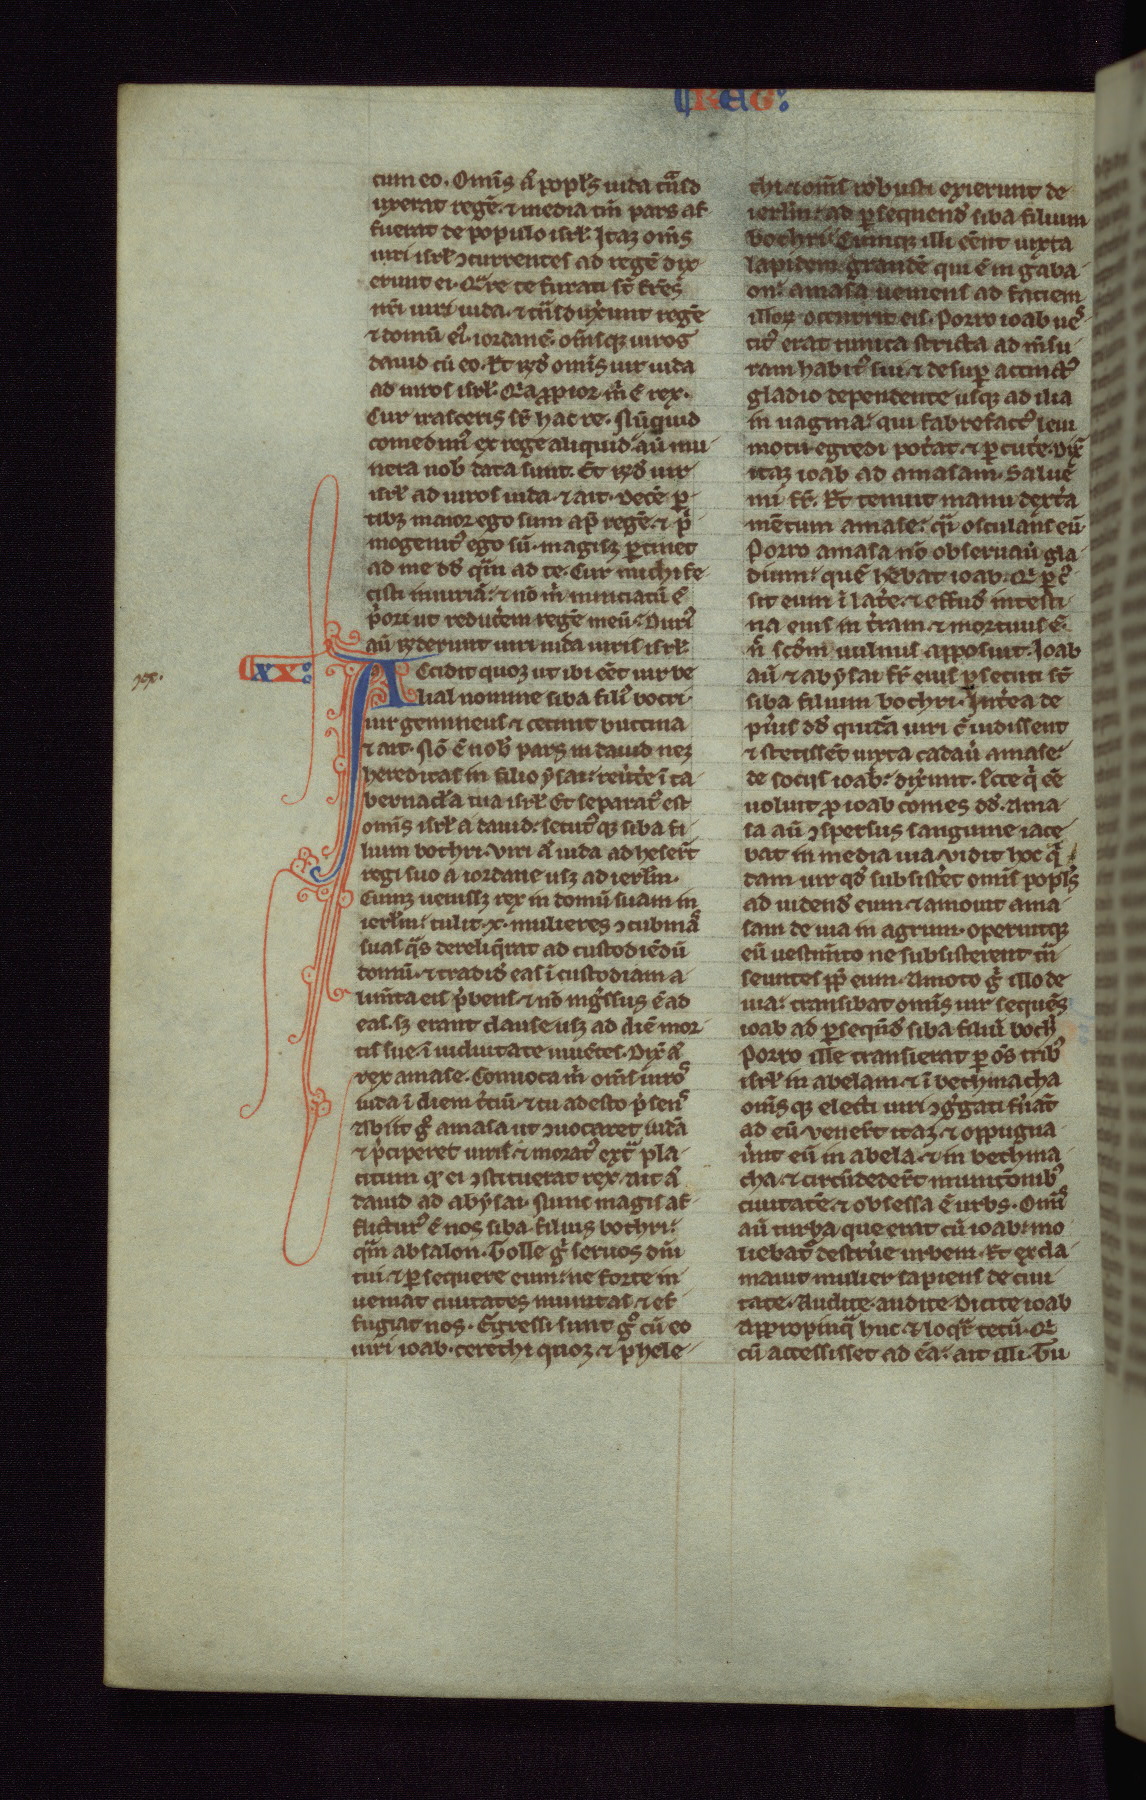 REG:
cum eo. Omis a͛ popl's iuda tr̃ñsd
uxerat regē. ⁊ media tm̄ pars af
fuerat de populo isrl̓. Itaꝫ om̄s
uiri isrl̓ ꝯcurrentes ad regē dix
erunt ei. Qͣre te furati st̄ fr̄es
nr̄i uiri iuda. ⁊ tͣsduxer̃unt regē
⁊ domū ei᷒ iordanē. om̄sqꝫ uiros
dauid cū eo. Et r̄ndit om̄is uir iuda
ad uiros isrl̓. Qͥa ꝓpior m̓ ē rex.
Cur irasceris sr̄ hac re. Nūquid
comedim᷒ ex rege aliquid aū mu
nera nob̄ data sunt. Et r̄ndit uir
isrl̓ ad uiros iuda. ⁊ ait. Decē ꝑ
tibꝫ maior ego sum ap̄ regē. ⁊ p̓
mogenit᷒ ego sū. magisqꝫ ꝑtinet
ad me dd̓ qͣm ad te. Cur michi fe
cisti iniuriā. ⁊ nō m̓ nunciatū ē
p̓ori ut reducerem regē meū. Duri᷒
aū r̄nderunt uiri iuda uiris isrl̓.
XX:
xx.
Accidit quoqꝫ ut ibi eēt uir be
lial nomine siba fili᷒ bocri.
uir gemineus ⁊ cecinit buccina
⁊ ait. Nō ē nob̄ pars in dauid neqꝫ
hereditas in filio ysai. reu̓te̓ ī ta
bernacl̓a tua isrl̓. Et separat᷒ est
om̄is isrl̓ a dauid. secut᷒qꝫ siba fi
lium bochri. Viri a͛ iuda adheser̄t
regi suo a iordane usqꝫ ad ierl̓m.
Cumqꝫ uenissꝫ rex in domū suam in
ierl̓m. tulit .x. mulieres ꝯcubinaͣs
suas qͣs dereliq̓rat ad custodiēdū
domū. ⁊ tradid̓ eas ī custodiam a
limēta eis p̓bens. ⁊ nō ingͥssus ē ad
eas. sꝫ erant clause usqꝫ ad diē mor
tis sue. ī uiduitate uiuētes. Dix̓ a͛
rex amase. Conuoca m̓ om̄s uiros
iuda ī diem t̓ciū. ⁊ tu adesto p̓sens
Abiit gͦ amasa ut ꝯuocaret iudā
⁊ p̓ciperet uiris. ⁊ morat᷒ extͣ pla
citum qd̓ ei ꝯstituerat rex. Ait a͛
dauid ad abysai. Nunc magis af
flictur᷒ ē nos siba filius bochri.
qͣm absalon. Tolle gͥ seruos dn̄i
tui. ⁊ ꝑsequere eum. ne forte in
ueniat ciuitates munitas. ⁊ ef
fugiat nos. Egressi sunt gͦ cū eo
uiri ioab. cerethi quoqꝫ ⁊ phele
thi ⁊ om̄s robusti exierunt de
ierl̓m. ad ꝑsequend̓ siba filium
bochri. Cumqꝫ illi eēnt iuxta
lapidem grandē qui ē in gaba
on. amasa ueniens ad faciem
illoꝝ occurrit eis. Porro ioab ues
tit᷒ erat tunica stricta ad m̄su
ram habit᷒ sui. ⁊ desuꝑ accinct᷒
gladio dependente usqꝫ ad ilia
in uagina. qui fabrefact᷒ leui
motu egredi pot̓at. ⁊ ꝑcut̓e. Dix̓
itaqꝫ ioab ad amasam. Salue
mi fr̄. Et tenuit manu dext̓a
mētum amase. qͣi osculans eū
Porro amasa nō obseruau̓ gla
dium. quē hēbat ioab. Qͥ ꝑcͥs
sit eum ī lat̓e. ⁊ effud̓ intesti
na eius in t̓ram. ⁊ mortuus ē.
n̄ scd̄m uulnus apposuit. Ioab
aū ⁊ abysai fr̄ eius ꝑsecuti st̄
siba filium bochri. Int̓ea de
pu̓is dd̓ quidā uiri cū uidissent
⁊ stetissēt iuxta cadau̓ amase.
de sociis ioab. dix̓unt. Ecce qͥ eē
uoluit ꝓ ioab comes dd̓. Ama
sa aū ꝯspersus sanguine iace
bat in media uia. Vidit hoc qͥ
dam uir qd̓ subsist̓et om̄is popl's
ad uidend̓ eum. ⁊ amouit ama
sam de uia in agrum. operuitqꝫ
eū uestim̄to ne subsisterent tͣn
seuntes ꝓpt̓ eum. Amoto gͥ illo de
uia. transibat om̄is uir sequēs
ioab ad ꝑseqn̄d̓ siba filiū bochͥ
Porro ille transierat ꝑ om̄s trib᷒
isrl̓ in abelam. ⁊ ī bethmacha
om̄sqꝫ electi uiri ꝯgͤgati fu̓ant
ad eū. Vener̄t itaqꝫ ⁊ oppugna
bāt eū in abela. ⁊ in bethma
cha. ⁊ circūdeder̄t municōnib᷒
ciuitatē. ⁊ obsessa ē urbs. Om̄is
aū turba que erat cū ioab. mo
liebat᷑ destrue̓ urbem. Et excla
mauit mulier sapiens de ciui
tate. Audite. audite. Dicite ioab
Appropinqͣ huc ⁊ loqͣr tecū. Qͥ
cū accessisset ad eā. ait illi. Tu